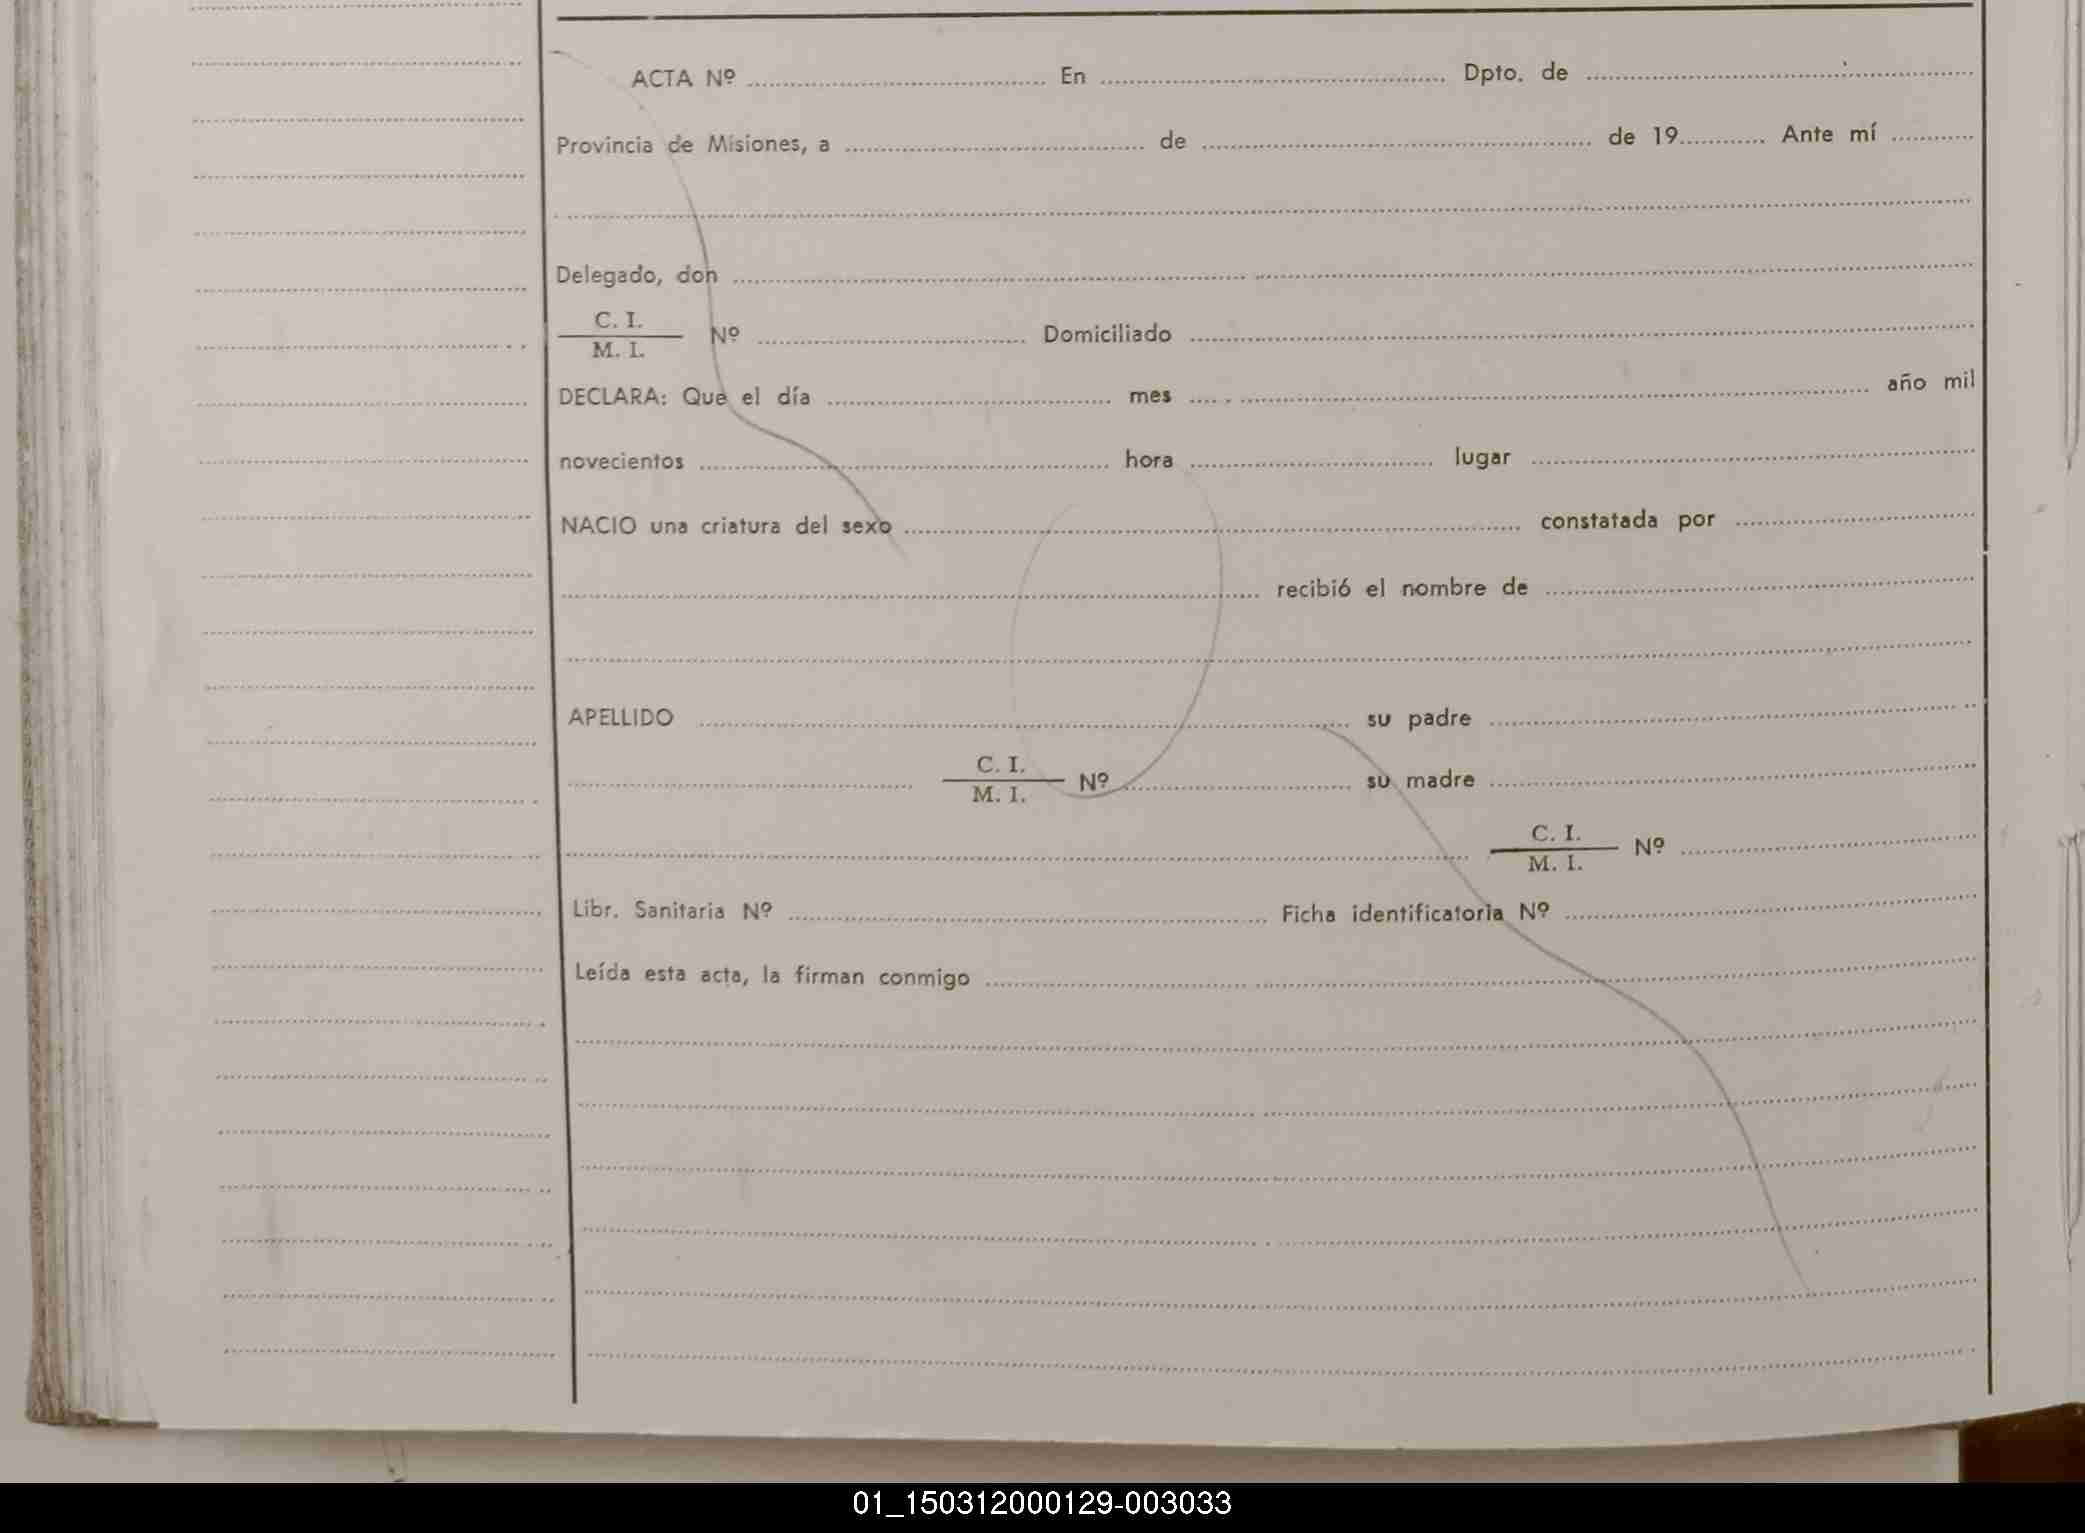 ACTA Nº ........ En ........ Dpto. de ........
Provincia de Misiones, a ........ de ........ de 19........ Ante mí ........
Delegado, don ........
C. I.
M. I. Nº ........ Domiciliado ........
DECLARA: Que el día ........ mes ........ año mil
novecientos ........ hora ........ lugar ........
NACIO una criatura del sexo ........ constatada por ........
........ recibió el nombre de ........
APELLIDO ........ su padre ........
C. I.
M. I. Nº ........ su madre ........
C. I.
M. I. Nº ........
Libr. Sanitaria Nº ........ Ficha identificatoria Nº ........
Leída esta acta, la firman conmigo ........
01_150312000129-003033